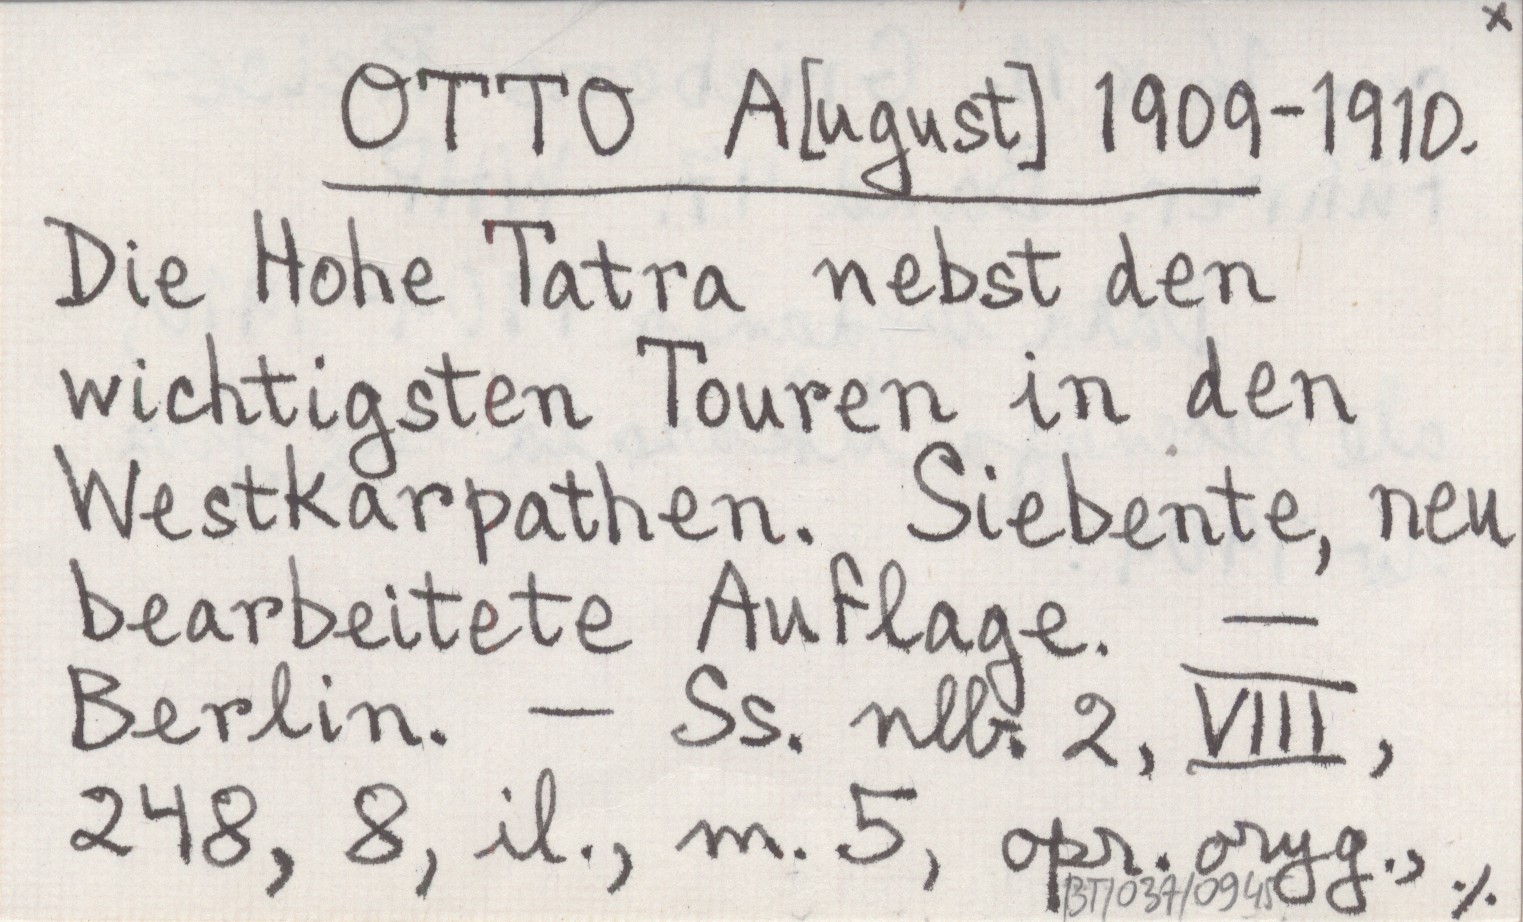 x
OTTO A[ugust] 1909-1910.
Die Hohe Tatra nebst den
wichtigsten Touren in den
Westkarpathen. Siebente, neu
bearbeitete Auflage. —
Berlin. — Ss. nlb. 2, VIII,
248, 8, il., m. 5, opr. oryg., ./.
BT/037/0945